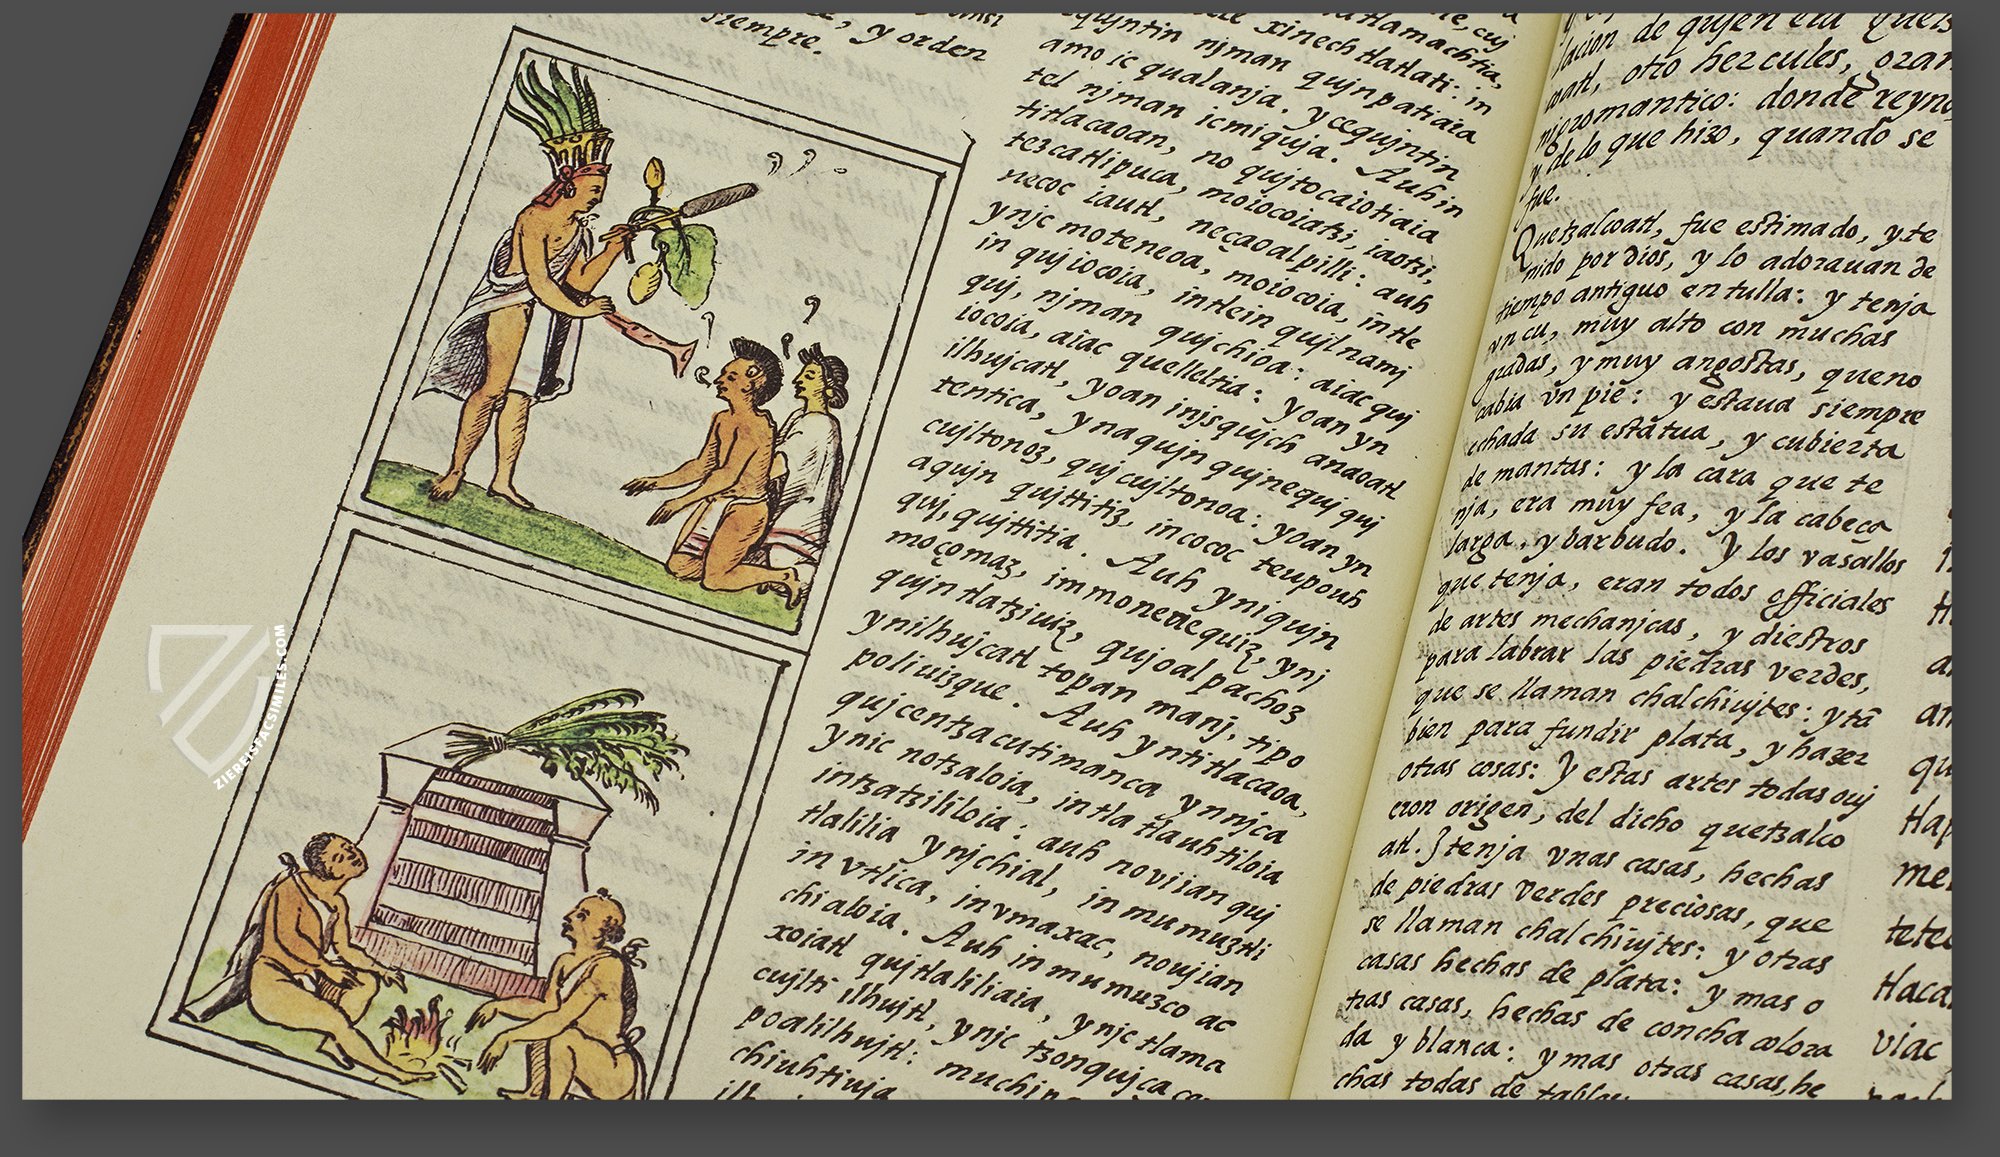 siempre. , y orden
tlamachtia,
xinechtlatlati: in
equjntin njman qujnpatiaia
amo ic qualanja. ycequjntin
tel njman icmiquja. Auh in
titlacaoan, no qujtocaiotiaia
tezcatlipuca, moiocoiatzi, iaotzi,
necoc iautl, neçaoalpilli: auh
ynjc moteneoa, moiocoia, in tle
in qujiocoia, intlein qujlnamj
quj, njman qujchioa: aiac quj
iocoia, aiac quelleltia: yoan yn
ilhujcatl, yoan injsqujch anaoatl
tentica, ynaqujn qujnequj quj
cujltonoz, qujcujltonoa: yoan yn
aqujn qujttitiz, incococ teupouh
quj, qujttitia. Auh yniqujn
moçomaz, immonenequiz, ynj
qujn tlatziuiz, qujoalpachoz
ynilhujcatl topan manj, tipo
poliuizque. Auh yntitlacaoa,
qujcentzacutimanca ynnjca
ynic notzaloia, intlatlauhtiloia
intzatzililoia: auh noviian quj
tlalilia ynjchial, in mumuztli
in vtlica, invmaxac, noujian
chialoia. Auh in mumuzco ac
xoiatl qujtlaliliaia, ynjc tlama
cujlti ilhujtl, ynjc tzonqujca
poalilhujtl: muchi
chiuhtiuja
lacion de qujen era Quetz
coatl, otro hercules, gran
njgromantico: donde reyno
y de lo que hizo, quando se
fue.
Quetzalcoatl, fue estimado, y te
nido por dios, y lo adorauan de
tiempo antiguo en tulla: y tenja
vn cu, muy alto con muchas
gradas, y muy angostas, que no
cabia vn pie: y estaua siempre
echada su estatua, y cubierta
de mantas: y la cara que te
nja, era muy fea, y la cabeça
larga, y barbudo. Y los vasallos
que tenja, eran todos officiales
de artes mechanjcas, y diestros
para labrar las piedras verdes,
que se llaman chalchiujtes: y tã
bien para fundir plata, y hazer
otras cosas: Y estas artes todas ouj
eron origen, del dicho quetzalco
atl. Y tenja vnas casas, hechas
de piedras verdes preciosas, que
se llaman chalchiujtes: y otras
casas hechas de plata: y mas o
tras casas, hechas de concha colora
da y blanca: y mas otras casas, he
chas todas de tablas
ZIEREISFACSIMILES.COM